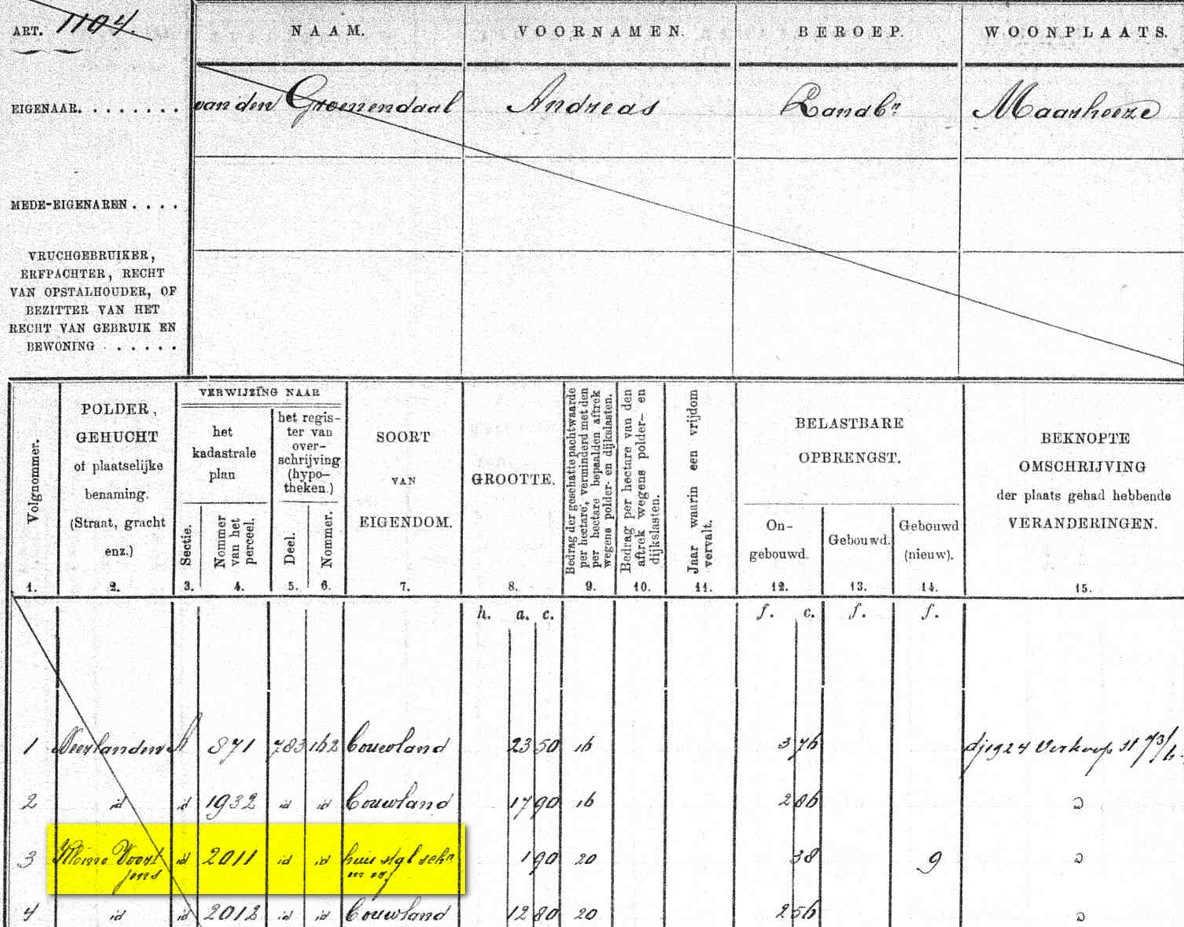 ART. 1104.
NAAM. VOORNAMEN. BEROEP. WOONPLAATS.
EIGENAAR. . . . . . . . van den Groenendaal Andreas Landbr Maarheeze
MEDE-EIGENAREN . . . .
VRUCHGEBRUIKER,
ERFPACHTER, RECHT
VAN OPSTALHOUDER, OF
BEZITTER VAN HET
RECHT VAN GEBRUIK EN
BEWONING . . . . .
Volgnommer.
POLDER,
GEHUCHT
of plaatselijke
benaming.
(Straat, gracht
enz.)
VERWIJZING NAAR
het
kadastrale
plan
het regis-
ter van
over-
schrijving
(hypo-
theken.)
Sectie.
Nommer
van het
perceel.
Deel.
Nommer.
SOORT
VAN
EIGENDOM.
GROOTTE.
Bedrag der geschatte pachtwaarde
per hectare, verminderd met den
per hectare bepaalden aftrek
wegens polder- en dijkslasten.
Bedrag per hectare van den
aftrek wegens polder- en
dijkslasten.
Jaar waarin een vrijdom
vervalt.
BELASTBARE
OPBRENGST.
On-
gebouwd.
Gebouwd.
Gebouwd
(nieuw).
BEKNOPTE
OMSCHRIJVING
der plaats gehad hebbende
VERANDERINGEN.
1. 2. 3. 4. 5. 6. 7. 8. 9. 10. 11. 12. 13. 14. 15.
h. a. c. f. c. f. f.
1 A 871 783 162 Bouwland 23 50 16 3 76 dj 1924 Verkoop
2 id id 1932 id id Bouwland 17 90 16 2 86
3 id 2011 id id huis stal schr 1 90 20 38 9
en erf
4 id id 2012 id id Bouwland 12 80 20 2 56